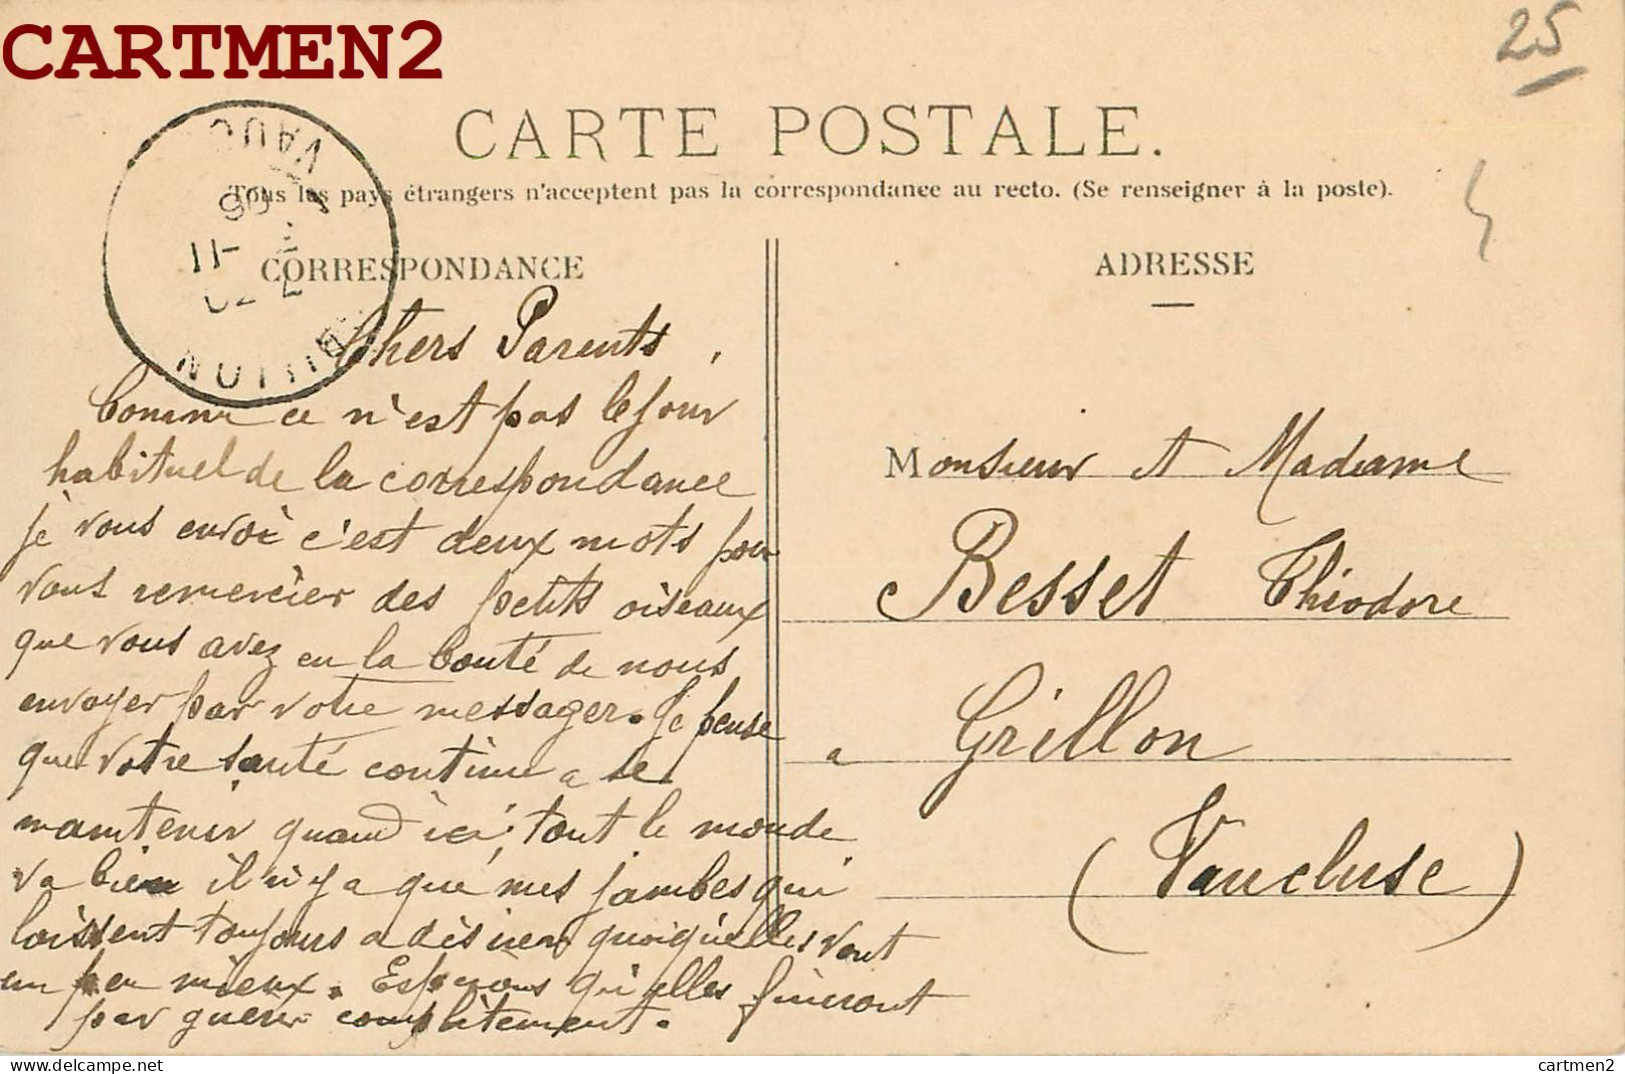 CARTMEN2
25
CARTE POSTALE.
Tous les pays étrangers n'acceptent pas la correspondance au recto. (Se renseigner à la poste).
CORRESPONDANCE
ADRESSE
VAUC
11
Chers Parents,
Comme ce n'est pas le jour
habituel de la correspondance
je vous envoi c'est deux mots pour
vous remercier des petits oiseaux
que vous avez eu la bonté de nous
envoyer par votre messager. Je pense
que votre santé continu a se
maintenir quand ici, tout le monde
va bien il n'y a que mes jambes qui
laissent toujours a désirer quoiqu'elles vont
un peu mieux. Esperons qu'elles finiront
par guérir complètement.
Monsieur et Madame
Besset Théodore
a Grillon
(Vaucluse)
cartmen2